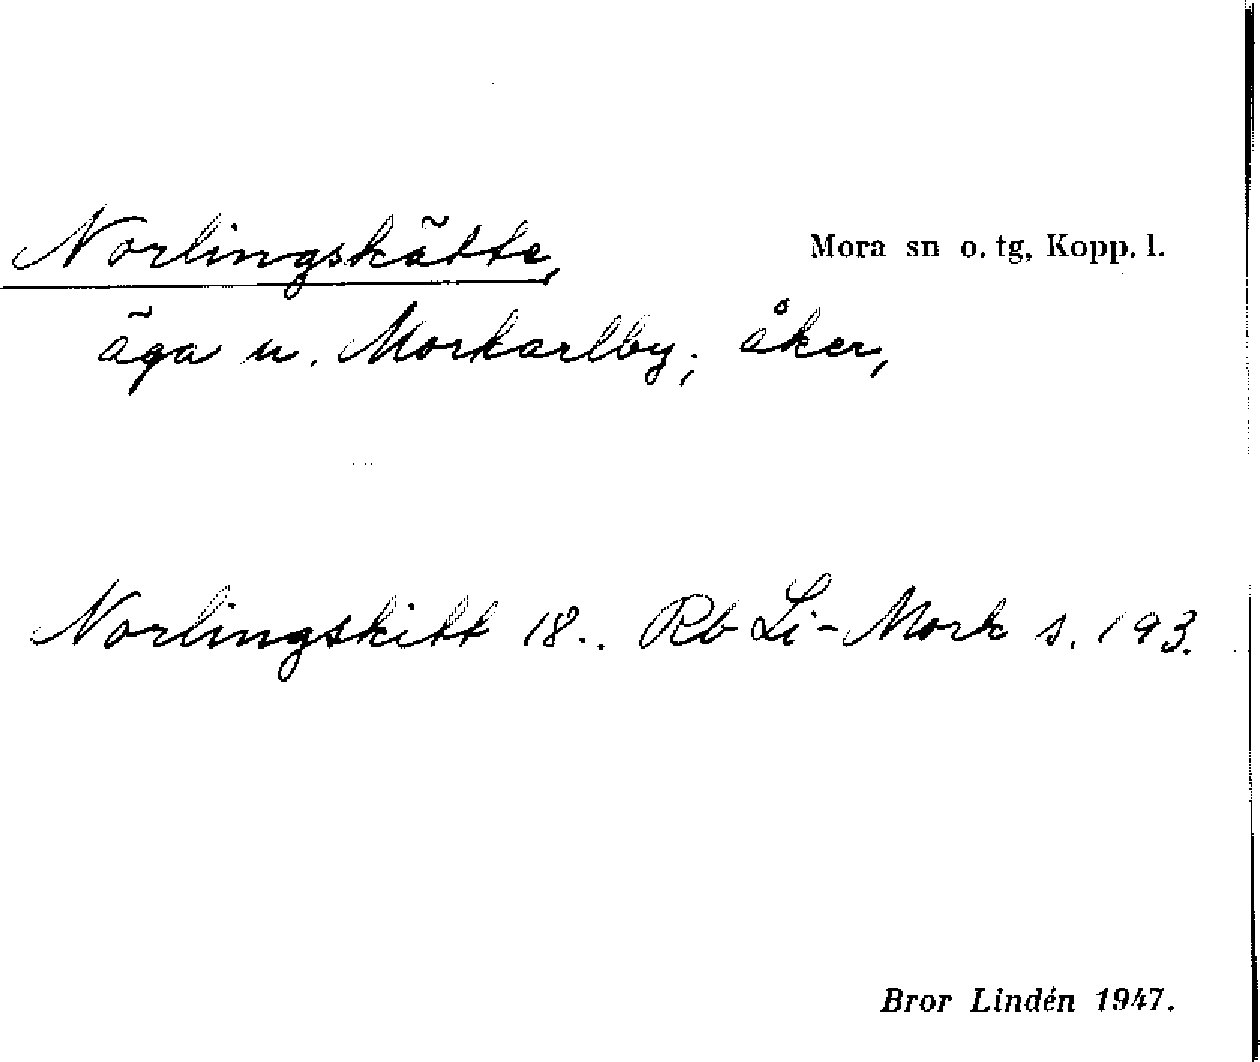 Norlingskätte, Mora sn o. tg, Kopp. l.
äga u. Morkarlby; åker,
Norlingskitt 18.. Rb Li-Mork s. 193.
Bror Lindén 1947.